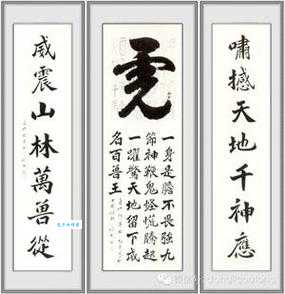 嘯撼天地千神應
虎
一身是膽不畏強九
節神鞭鬼怪慌騰起
一躍驚天地留下威
名百獸王
威震山林萬獸從